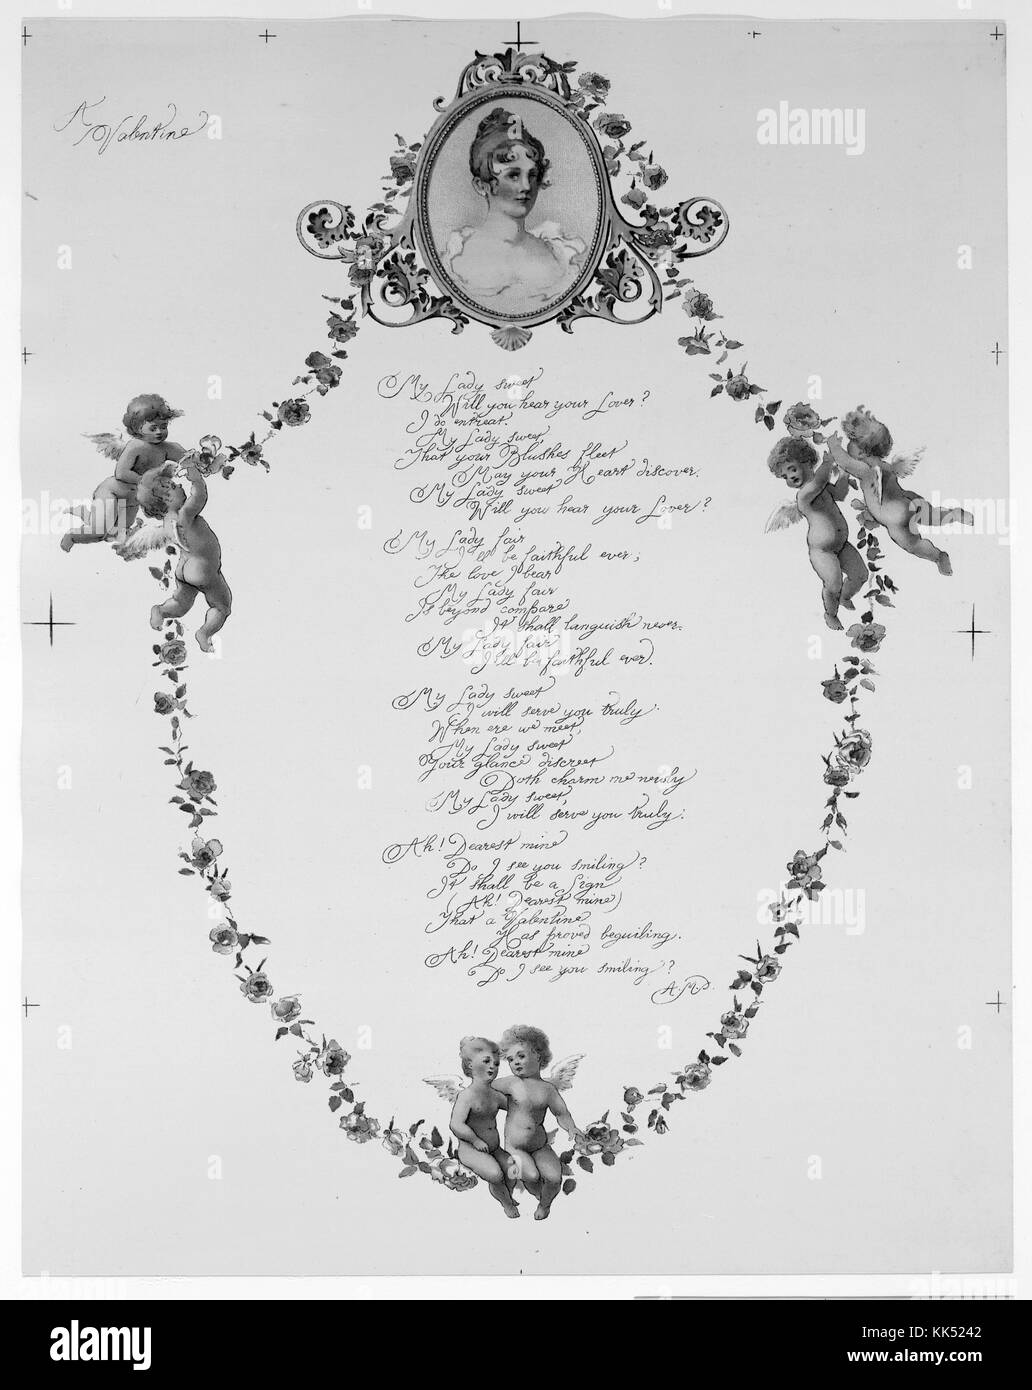 A Valentine
My Lady sweet
Will you hear your Lover?
I do entreat.
My Lady sweet
That your Blushes fleet
May your Heart discover.
My Lady sweet
Will you hear your Lover?
My Lady fair
I'll be faithful ever;
The love I bear
My Lady fair
Is beyond compare
It shall languish never.
My Lady fair
I'll be faithful ever.
My Lady sweet
I will serve you truly.
When ere we meet,
My Lady sweet
Your glance discreet
Doth charm me newly
My Lady sweet,
I will serve you truly.
Ah! Dearest mine
Do I see you smiling?
It shall be a Sign
(Ah! Dearest mine)
That a Valentine
Has proved beguiling.
Ah! Dearest mine
Do I see you smiling?
A.M.P.
alamy
alamy
Image ID: KK5242
www.alamy.com